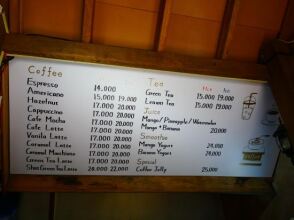 Coffee
Espresso 14.000
Americano 15.000 19.000
Hazelnut 17.000 20.000
Cappuccino 17.000 20.000
Cafe Mocha 17.000 20.000
Cafe Latte 17.000 20.000
Vanila Latte 17.000 20.000
Caramel Latte 17.000 20.000
Caramel Machiano 17.000 20.000
Green Tea Latte 17.000 20.000
Shot Green Tea Latte 20.000 22.000
Tea Hot Ice
Green Tea 15.000 19.000
Lemon Tea 15.000 19.000
Juice
Mango / Pineapple / Watermelon
Mango + Banana 20.000
Smoothie
Mango Yogurt 24.000
Banana Yogurt 24.000
Special
Coffee Jelly 25.000